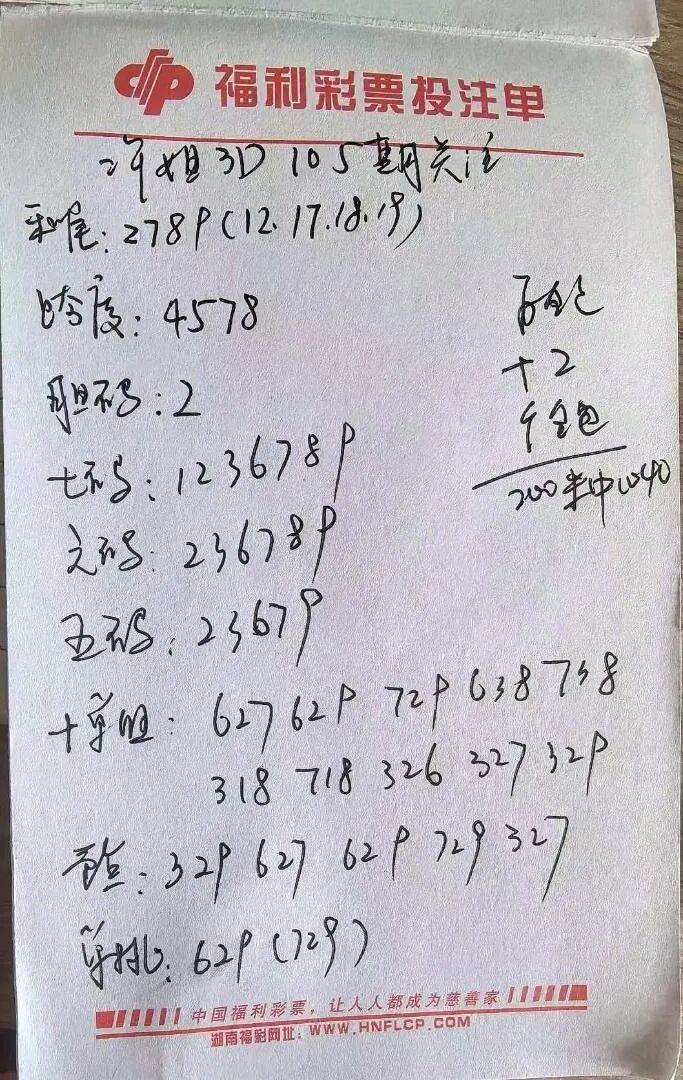 福利彩票投注单
3D 105期关注
和尾: 2789 (12.17.18.19)
跨度: 4578
胆码: 2
七码: 1236789
六码: 236789
五码: 23679
十单组: 627 629 729 638 738
318 718 326 327 329
重点: 329 627 629 729 327
单挑: 629 (729)
百全包
十2
个全包
200米中1040
中国福利彩票，让人人都成为慈善家
湖南福彩网址: WWW.HNFLCP.COM